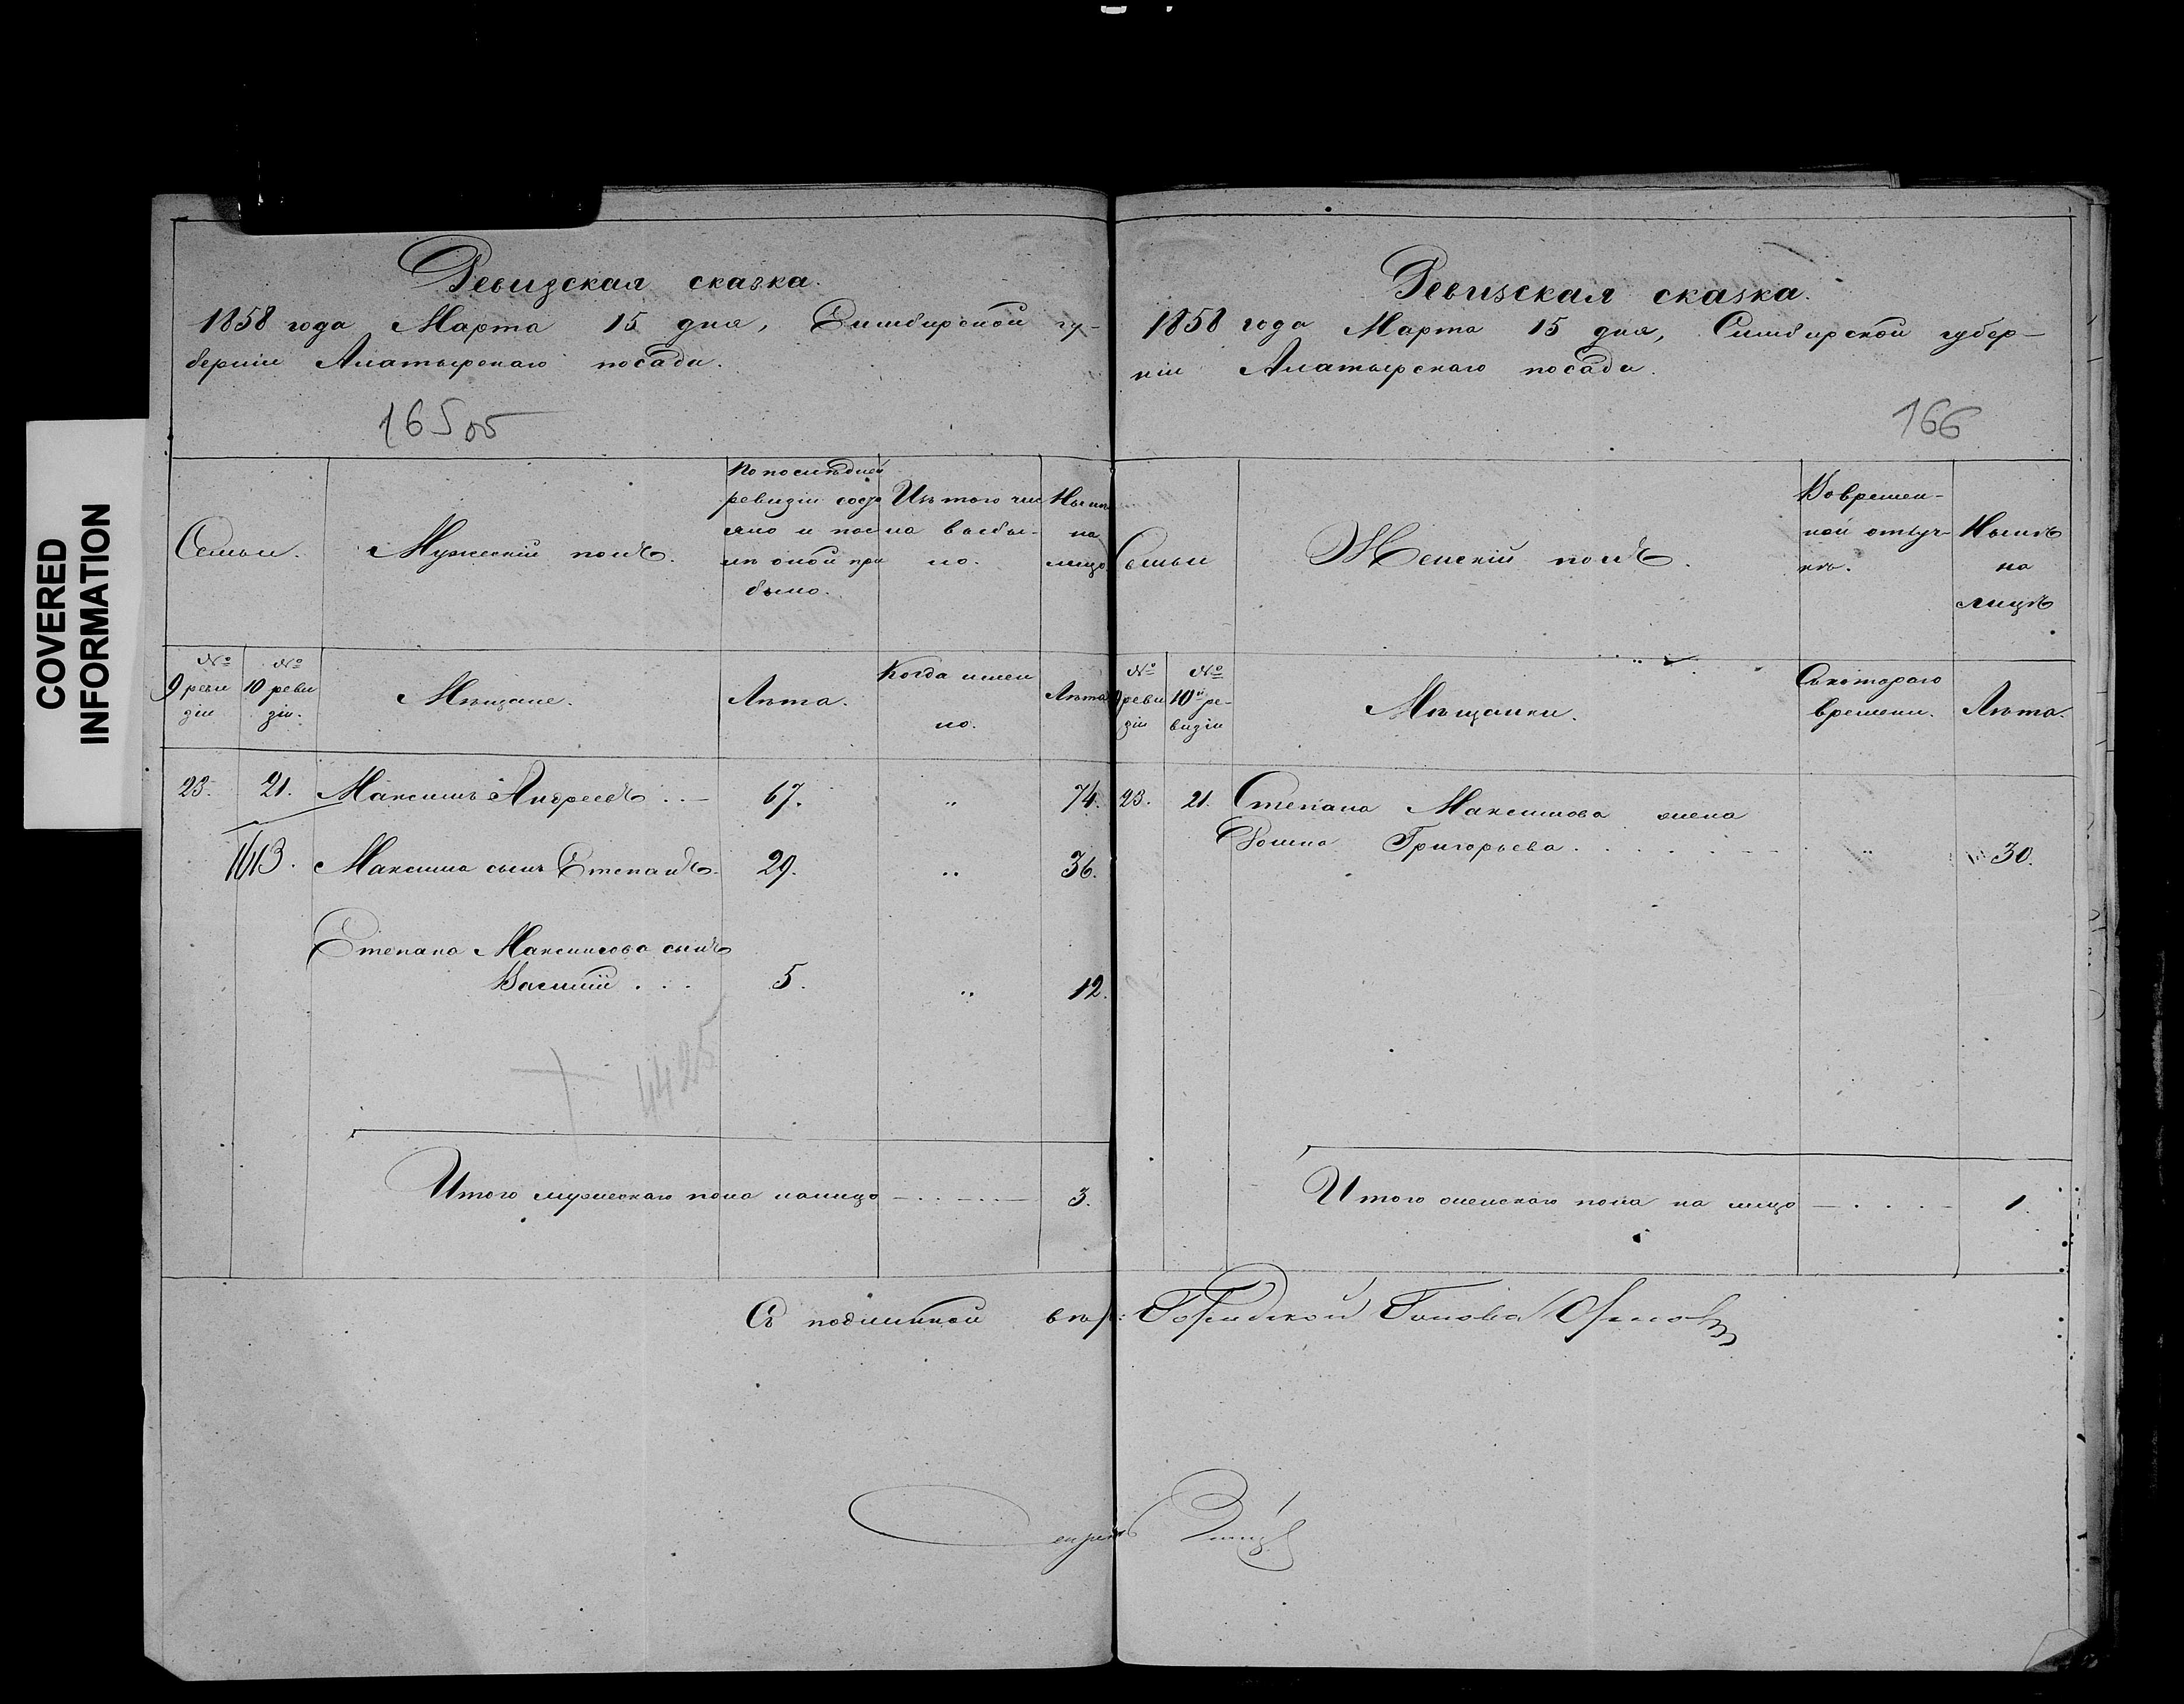 COVERED
INFORMATION
Ревизская сказка.
1858 года Марта 15 дня, Симбирской гу-
берніи Алатырскаго посада.
165
Семьи.
Мужескій полъ.
По последней
ревизіи состо
яло и пос
лѣ оной при
было.
Изъ того чис
ла выбы-
ло.
Нынѣ
на
лицо.
№
9 реви
зіи
№
10 реви
зіи.
Мѣщане.
Лѣта.
Когда имен
но.
Лѣта
23. 21. Максимъ Андреевъ . . — 67. „ 74.
Максима сынъ Степанъ. 29. „ 36.
Степана Максимова сынъ
Василій . . . 5. „ 12.
4425
Итого мужескаго пола налицо — . . . — 3.
Съ подлинной вѣр:
Ревизская сказка.
1858 года Марта 15 дня, Симбирской губер-
ніи Алатырскаго посада.
166
Семьи
Женскій полъ.
Во времен-
ной отлуч-
кѣ.
Нынѣ
на
лицѣ
№
9 реви
зіи
№
10й ре-
визіи
Мѣщанки.
Съ котораго
времени.
Лѣта.
23. 21. Степана Максимова жена
Григорьева . . . . . „ 30.
Итого женскаго пола на лицо — . . . . — 1.
Городской Голова